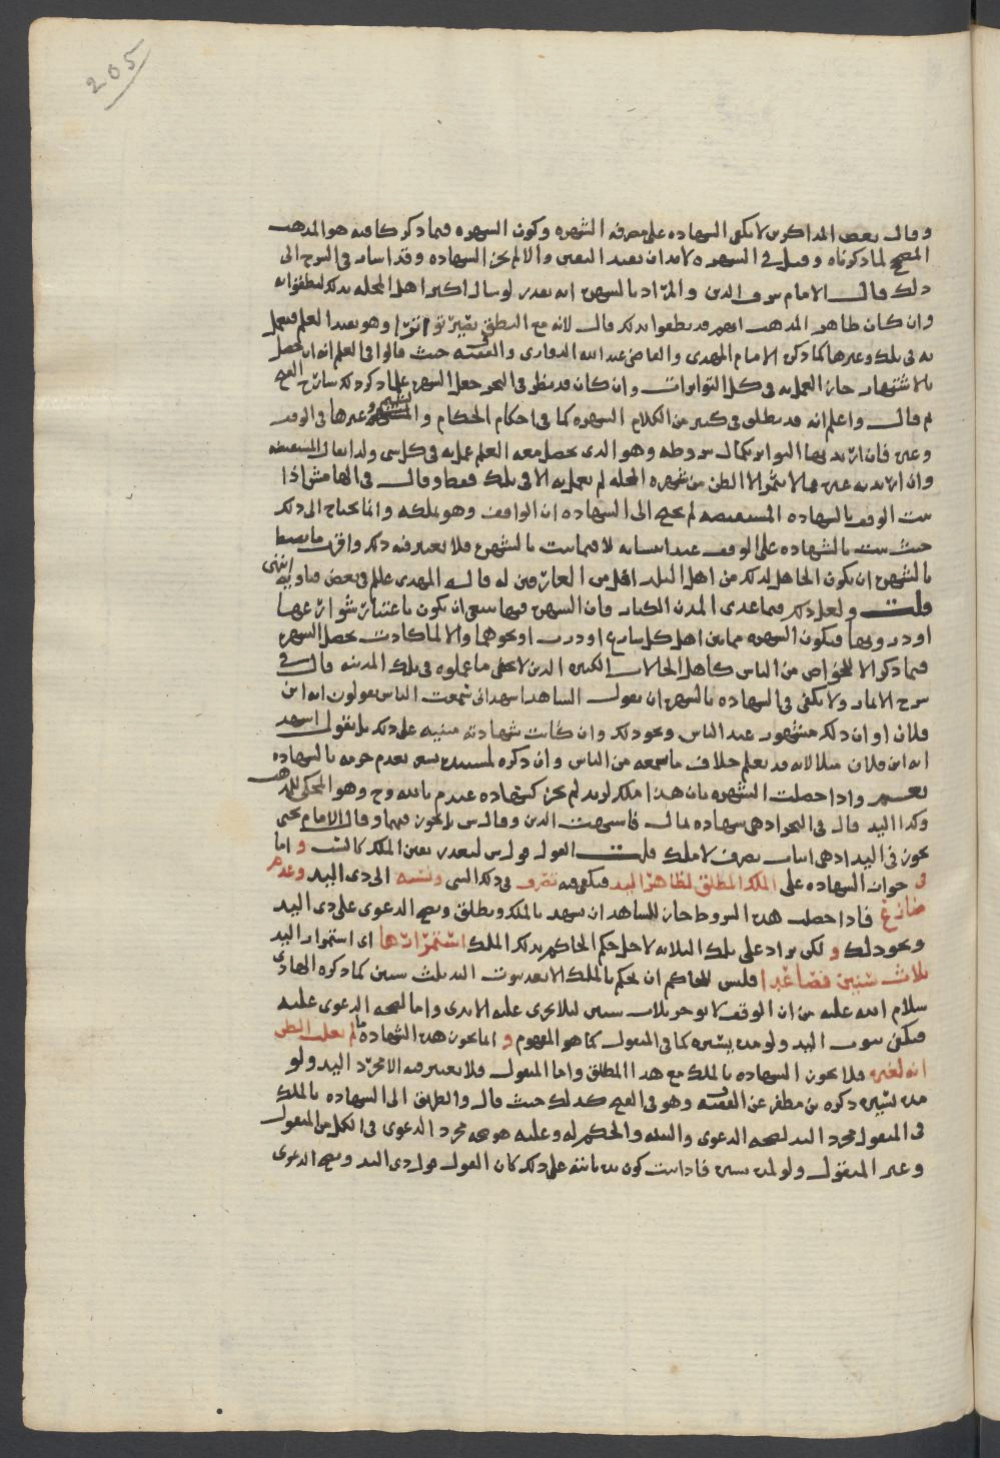 205
وقال بعض المذاكرين لا يكفي الشهادة على معرفة الشهرة وكون الشهرة فيما ذكر كافية هو المذهب
المصحح لما ذكرناه وقيل في الشهرة لا بد ان تفيد اليقين والا لم تجز الشهادة وقد اشار في الشرح الى
ذلك قال الامام شرف الدين والمراد بالشهرة انه يقدر لو سال اكثر اهل المحلة بذلك لنطقوا به
وان كان ظاهر المذهب انهم قد نطقوا بذلك قال لانه مع النطق يصير تواترا وهو يفيد العلم فيعمل
به في تلك وغيرها كما ذكره الامام المهدي والقاضي عبد الله الدواري والفقيه حيث قالوا في العلم انه ان حصل
بالاشتهار جاز العمل به في كل المتواترات وان كان قد نظر في البحر جعل الشهرة علما ذكر ذلك شارح الفتح
ثم قال واعلم انه قد يطلق في كثير من الكلام الشهرة كما في احكام الحكام و وغيرها في الوقف
وغيره فان اريد بها التواتر بكمال شروطه وهو الذي يحصل معه العلم عمل به في كل شي
وان اريد به غيره مما لا يثمر الا الظن من شهرة المحلة لم يعمل به الا في تلك فقط وقال في الهامش اذا
ثبت الوقف بالشهادة المستفيضة لم يحتج الى الشهادة ان الواقف وقف وهو يملكه وانما يحتاج الى ذلك
حيث ثبت بالشهادة على الوقف عند لا فيما ثبت بالشهرة فلا يعتبر فيه ذلك واقرب ما يضبط
بالشهرة ان يكون الجاهل لذلك من اهل البلد اقل من العارفين له قاله المهدي علم في بعض فتاويه انتهى
قلت ولعل ذلك فيما عدى المدن الكبار فان الشهرة فيها ينبغي ان يكون باعتبار شوارعها
او دروبها فيكون الشهرة فيما بين اهل كل شارع او درب او نحوهما والا لما كادت تحصل الشهرة
فيما ذكر الا للخواص من الناس كاهل الحالات الكبيرة الذين لا يخفى ما عملوه في تلك المدينة قال في
شرح الاثمار ولا يكفي في الشهادة بالشهرة ان يقول الشاهد اشهد اني سمعت الناس يقولون انه ابن
فلان او ان ذلك مشهور عند الناس ونحو ذلك وان كانت شهادته مبنية على ذلك بل يقول اشهد
انه ابن فلان مثلا لانه قد يعلم خلاف ما سمعه من الناس وان ذكره بعدم جزمه بالشهادة
نعم واذا حصلت الشهرة بان هذا ملك لزيد لم تجز كشهادة عندم بالله وح وهو المحكي للمذهب
وكذا اليد قال في البحر اذ هي شهادة بمال فاشبهت الدين وقال س بل يجوز فيهما وقال الامام يحيى
يجوز في اليد اذ هي اثبات تصرف لا ملك قلت القول قول س لتعذر يقين الملك كالنسب و اما
في جواز الشهادة على الملك المطلق لظاهر اليد فيكفي فيه تصرف في ذلك الشي ونسبة الى ذي اليد وعدم
منازع فاذا حصلت هذه الشروط جاز للشاهد ان يشهد بالملك ويطلق ويصح الدعوى على ذي اليد
ونحو ذلك و لكن يزاد على تلك الثلاثة لاجل حكم الحاكم بذلك الملك استمرارها اي استمرار اليد
ثلاث سنين فصاعدا فليس للحاكم ان يحكم بالملك الا بعد ثبوت اليد ثلث سنين كما ذكره الهادي
سلام الله عليه من ان الوقف لا يوجر ثلاث سنين ليلا يجري عليه الايدي واما لصحة الدعوى عليه
فيكفي ثبوت اليد ولو مدة يسيرة كما في المنقول كما هو المفهوم و انما يجوز هذه الشهادة ما لم يغلب الظن
انه لغيره فلا يجوز الشهادة بالملك مع هذا المطلق واما المنقول فلا يعتبر فيه الا مجرد اليد ولو
مدة يسيرة ذكره بن مظفر عن الفقيه وهو في الفتح كذلك حيث قال والطريق الى الشهادة بالملك
في المنقول مجرد اليد لصحة الدعوى والبينة والحكم له وعليه هو صحة مجرد الدعوى في الكل من المنقول
وغير المنقول ولو لمدة يسيرة فاذا ثبت كون يده ثابتة على ذلك كان القول قول ذي اليد ويصح الدعوى